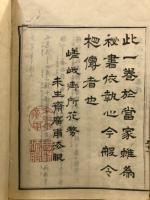 此一巻於當家雖為
秘書依執心今般令
相傳者也
嵯峨御所花務
未生斎廣甫